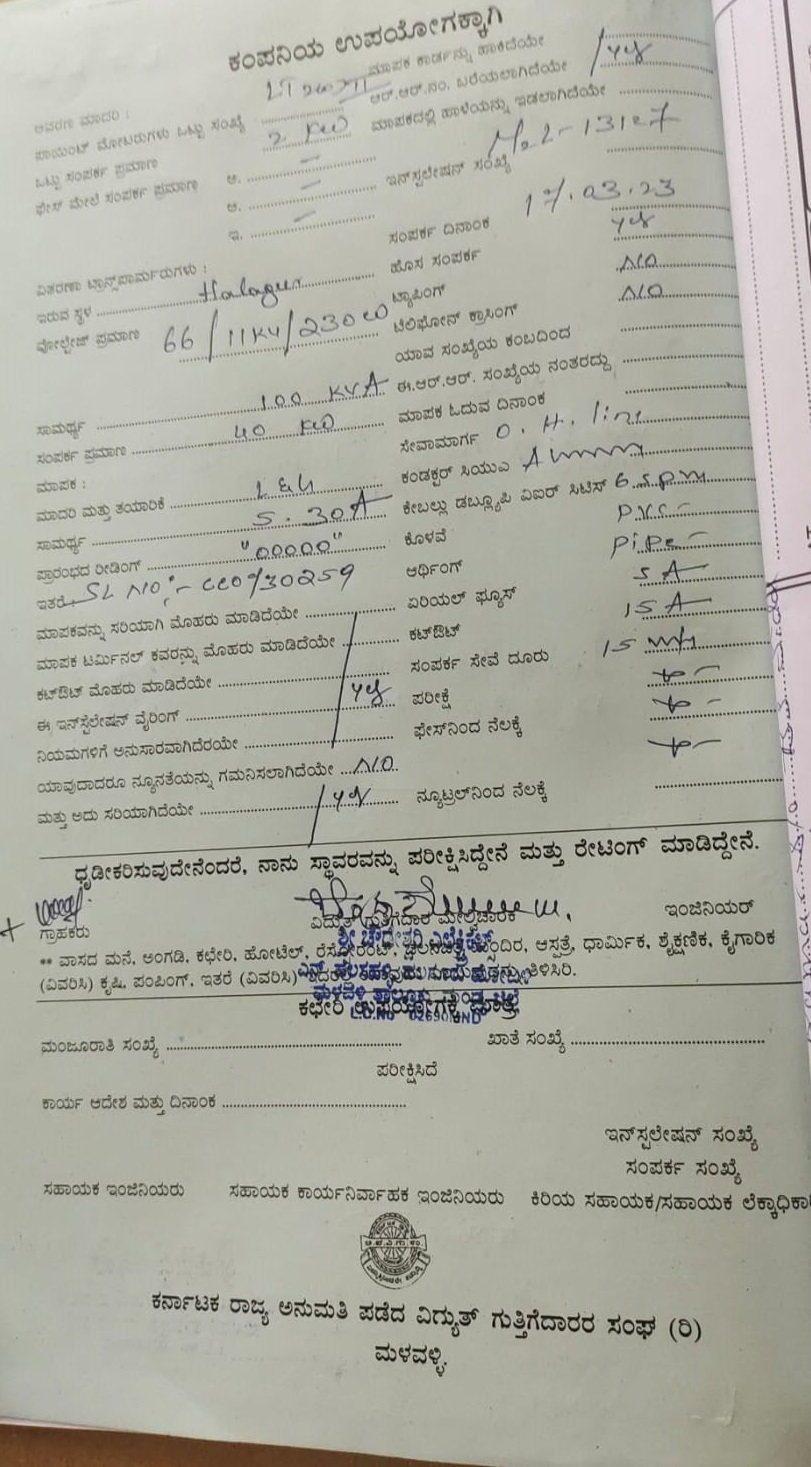 ಕಂಪನಿಯ ಉಪಯೋಗಕ್ಕಾಗಿ
ಆವರಣ ಮಾದರಿ : ಮಾಪಕ ಕಾರ್ಡನ್ನು ಹಾಕಿದೆಯೇ
ಪಾಯಿಂಟ್ ಮೋಟರುಗಳು ಒಟ್ಟು ಸಂಖ್ಯೆ ಆರ್.ಆರ್.ನಂ. ಬರೆಯಲಾಗಿದೆಯೇ yes
ಒಟ್ಟು ಸಂಪರ್ಕ ಪ್ರಮಾಣ 2 KW ಮಾಪಕದಲ್ಲಿ ಹಾಳೆಯನ್ನು ಇಡಲಾಗಿದೆಯೇ
ಫೇಸ್ ಮೇಲೆ ಸಂಪರ್ಕ ಪ್ರಮಾಣ ಅ. ಇನ್‌ಸ್ಪಲೇಷನ್ ಸಂಖ್ಯೆ
ಆ.
ಇ. ಸಂಪರ್ಕ ದಿನಾಂಕ 17.03.23
ವಿತರಣಾ ಟ್ರಾನ್ಸ್‌ಪಾರ್ಮರುಗಳು : ಹೊಸ ಸಂಪರ್ಕ yes
ಇರುವ ಸ್ಥಳ Halagur ಟ್ಯಾಪಿಂಗ್ NO
ವೋಲ್ಟೇಜ್ ಪ್ರಮಾಣ 66/11KV/230 ಟೆಲಿಫೋನ್ ಕ್ರಾಸಿಂಗ್ NO
ಯಾವ ಸಂಖ್ಯೆಯ ಕಂಬದಿಂದ
ಸಾಮರ್ಥ್ಯ 100 KVA ಈ.ಆರ್.ಆರ್. ಸಂಖ್ಯೆಯ ನಂತರದ್ದು
ಸಂಪರ್ಕ ಪ್ರಮಾಣ 40 KW ಮಾಪಕ ಓದುವ ದಿನಾಂಕ
ಮಾಪಕ : ಸೇವಾಮಾರ್ಗ O. H. line
ಮಾದರಿ ಮತ್ತು ತಯಾರಿಕೆ L&G ಕಂಡಕ್ಟರ್ ಸಿಯುಎ
ಸಾಮರ್ಥ್ಯ 5.30A ಕೇಬಲ್ಲು ಡಬ್ಲ್ಯೂಪಿ ವಿಐರ್ ಸಿಟಿಸ್
ಪ್ರಾರಂಭದ ರೀಡಿಂಗ್ "00000" ಕೊಳವೆ PVC
ಇತರೆ, SL NO:- ಆರ್ಥಿಂಗ್ Pipe
ಮಾಪಕವನ್ನು ಸರಿಯಾಗಿ ಮೊಹರು ಮಾಡಿದೆಯೇ ಏರಿಯಲ್ ಫ್ಯೂಸ್ 5A
ಮಾಪಕ ಟರ್ಮಿನಲ್ ಕವರನ್ನು ಮೊಹರು ಮಾಡಿದೆಯೇ ಕಟ್‌ಔಟ್ 15A
ಕಟ್‌ಔಟ್ ಮೊಹರು ಮಾಡಿದೆಯೇ ಸಂಪರ್ಕ ಸೇವೆ ದೂರು
ಈ ಇನ್‌ಸ್ಟಲೇಷನ್ ವೈರಿಂಗ್ yes ಪರೀಕ್ಷೆ
ನಿಯಮಗಳಿಗೆ ಅನುಸಾರವಾಗಿದೆರಯೇ ಫೇಸ್‌ನಿಂದ ನೆಲಕ್ಕೆ
ಯಾವುದಾದರೂ ನ್ಯೂನತೆಯನ್ನು ಗಮನಿಸಲಾಗಿದೆಯೇ NO
ಮತ್ತು ಅದು ಸರಿಯಾಗಿದೆಯೇ yes ನ್ಯೂಟ್ರಲ್‌ನಿಂದ ನೆಲಕ್ಕೆ
ಧೃಡೀಕರಿಸುವುದೇನೆಂದರೆ, ನಾನು ಸ್ಥಾವರವನ್ನು ಪರೀಕ್ಷಿಸಿದ್ದೇನೆ ಮತ್ತು ರೇಟಿಂಗ್ ಮಾಡಿದ್ದೇನೆ.
ಗ್ರಾಹಕರು ವಿದ್ಯುತ್ ಗುತ್ತಿಗೆದಾರ ಮೇಲ್ವಿಚಾರಕ ಇಂಜಿನಿಯರ್
** ವಾಸದ ಮನೆ, ಅಂಗಡಿ, ಕಛೇರಿ, ಹೋಟೆಲ್, ಆಸ್ಪತ್ರೆ, ಧಾರ್ಮಿಕ, ಶೈಕ್ಷಣಿಕ, ಕೈಗಾರಿಕ
(ವಿವರಿಸಿ) ಕೃಷಿ, ಪಂಪಿಂಗ್, ಇತರೆ (ವಿವರಿಸಿ) ತಿಳಿಸಿರಿ.
ಕಛೇರಿ ಉಪಯೋಗಕ್ಕೆ ಮಾತ್ರ
ಮಂಜೂರಾತಿ ಸಂಖ್ಯೆ ಖಾತೆ ಸಂಖ್ಯೆ
ಪರೀಕ್ಷಿಸಿದೆ
ಕಾರ್ಯ ಆದೇಶ ಮತ್ತು ದಿನಾಂಕ
ಇನ್‌ಸ್ಪಲೇಷನ್ ಸಂಖ್ಯೆ
ಸಂಪರ್ಕ ಸಂಖ್ಯೆ
ಸಹಾಯಕ ಇಂಜಿನಿಯರು ಸಹಾಯಕ ಕಾರ್ಯನಿರ್ವಾಹಕ ಇಂಜಿನಿಯರು ಕಿರಿಯ ಸಹಾಯಕ/ಸಹಾಯಕ ಲೆಕ್ಕಾಧಿಕಾ
ಕರ್ನಾಟಕ ರಾಜ್ಯ ಅನುಮತಿ ಪಡೆದ ವಿದ್ಯುತ್ ಗುತ್ತಿಗೆದಾರರ ಸಂಘ (ರಿ)
ಮಳವಳ್ಳಿ.